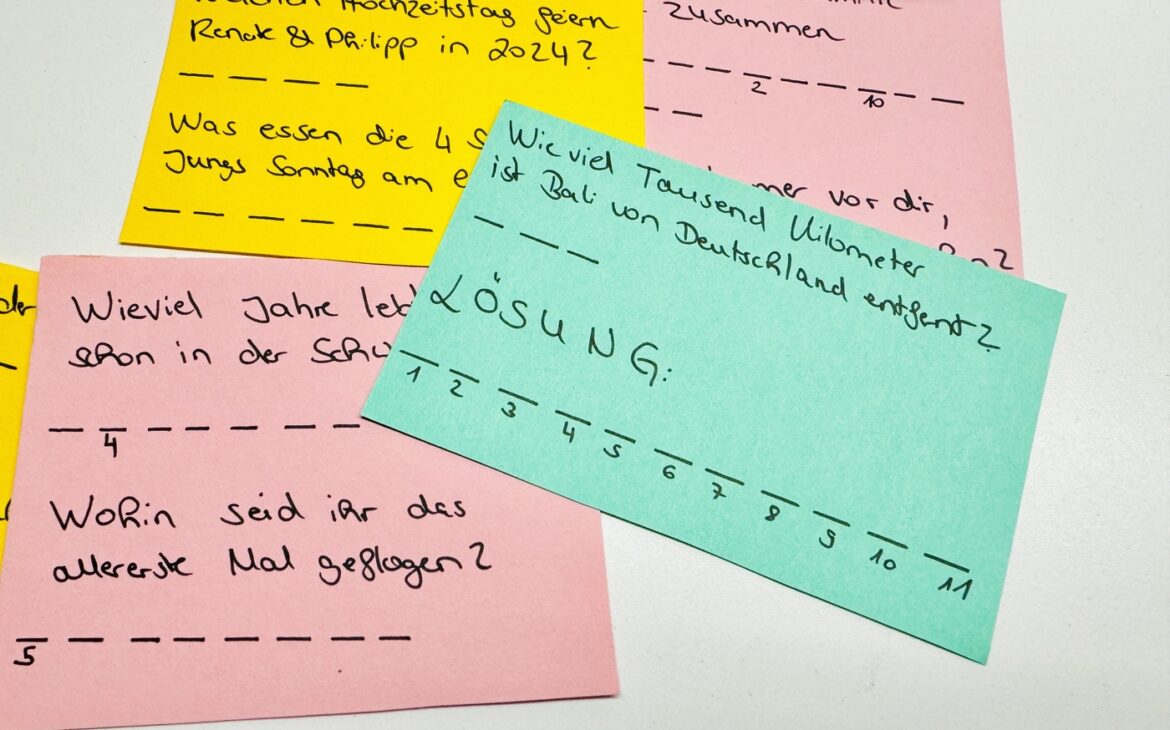 Hochzeitstag feiern
Renate & Philipp in 2024?
Was essen die 4
Jungs Sonntag am
zusammen
2 10
vor dir,
Wieviel Tausend Kilometer
ist Bali von Deutschland entfernt?
LÖSUNG:
1 2 3 4 5 6 7 8 9 10 11
der
Wieviel Jahre
schon in der
4
Wohin seid ihr das
allererste Mal geflogen?
5